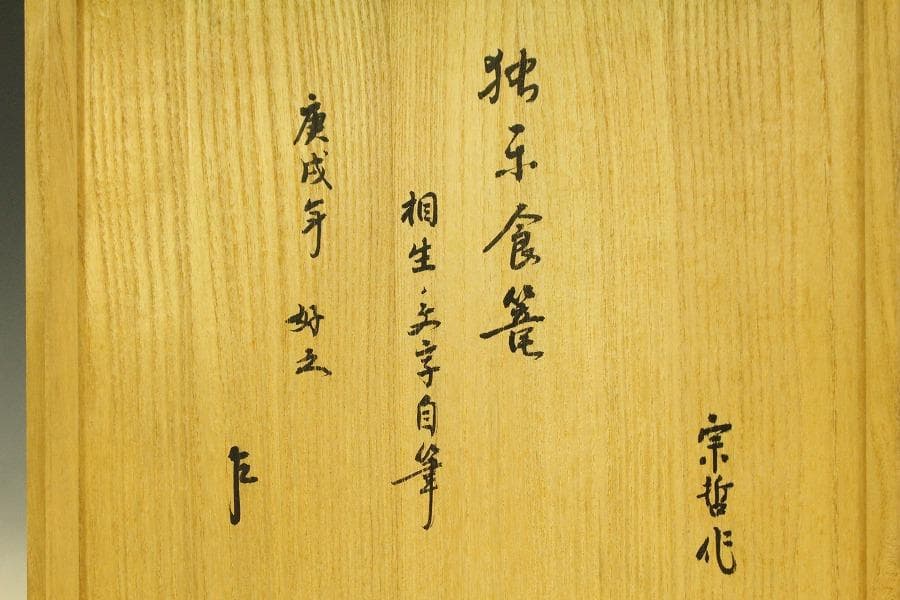 宗哲作
独楽食篭
相生ノ文字自筆
庚戌年 好之
左